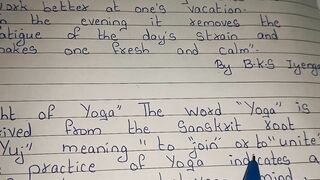 work better at one's vacation.
n the evening it removes the
atigue of the day's strain and
makes one fresh and calm".
By B.K.S Iyenga
ht of Yoga" The word "Yoga" is
rived from the Sanskrit root
"Yuj" meaning "to "join" or to "unite"
practice of Yoga indicates a
mind